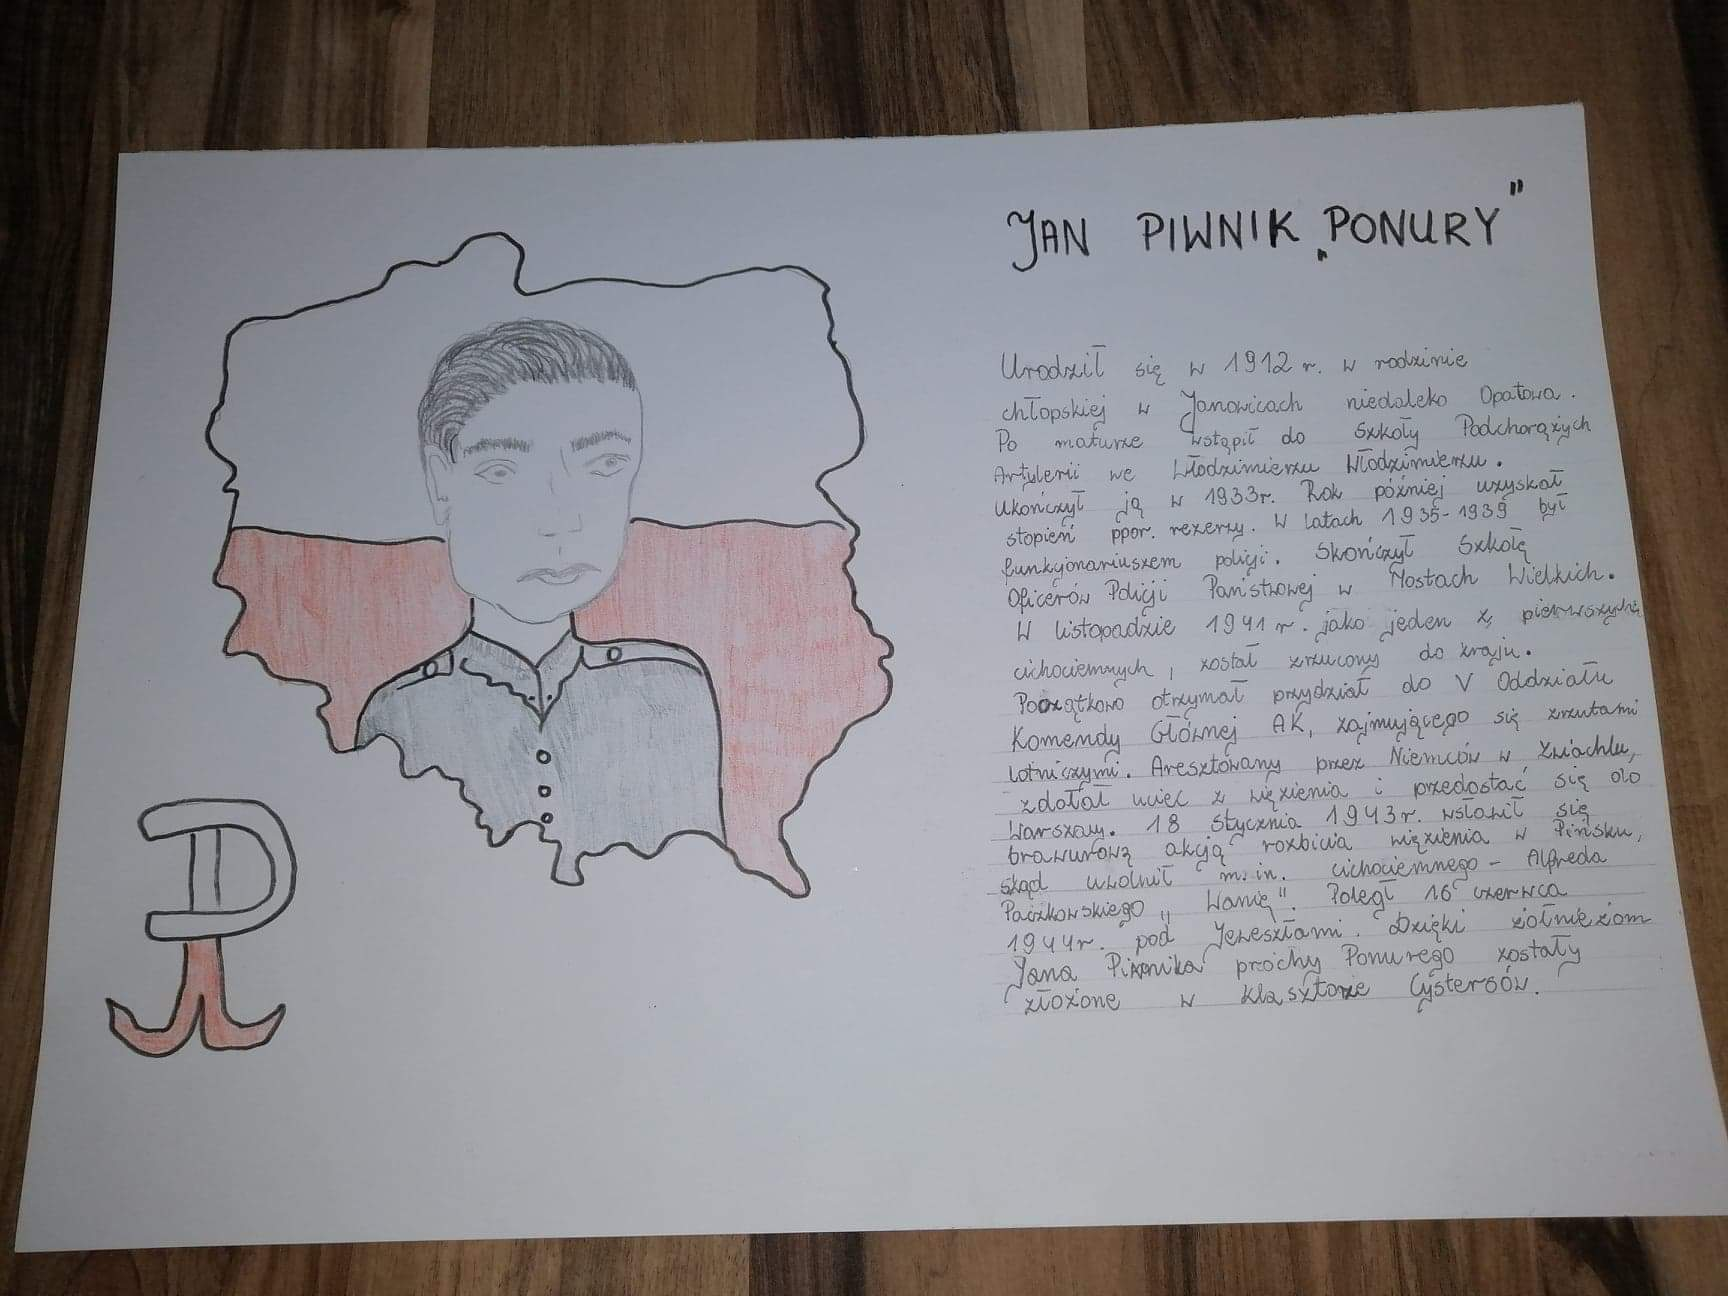 JAN PIWNIK „PONURY"
Urodził się w 1912 r. w rodzinie
chłopskiej w Janowicach niedaleko Opatowa.
Po maturze wstąpił do Szkoły Podchorążych
Artylerii we Włodzimierzu Włodzimierzu.
Ukończył ją w 1933r. Rok później uzyskał
stopień ppor. rezerwy. W latach 1935-1939 był
funkcjonariuszem policji. Skończył Szkołę
Oficerów Policji Państwowej w Mostach Wielkich.
W listopadzie 1941 r. jako jeden z pierwszych
cichociemnych, został zrzucony do kraju.
Początkowo otrzymał przydział do V Oddziału
Komendy Głównej AK, zajmującego się zrzutami
lotniczymi. Aresztowany przez Niemców w Zwiachlu,
zdołał uciec z więzienia i przedostać się do
Warszawy. 18 stycznia 1943r. wsławił się
brawurową akcją rozbicia więzienia w Pińsku,
skąd uwolnił m.in. cichociemnego - Alfreda
Paczkowskiego „Wanię". Poległ 16 czerwca
1944r. pod Jewłaszłami. Dzięki żołnieżom
Jana Piwnika prochy Ponurego zostały
złożone w klasztorze Cystersów.